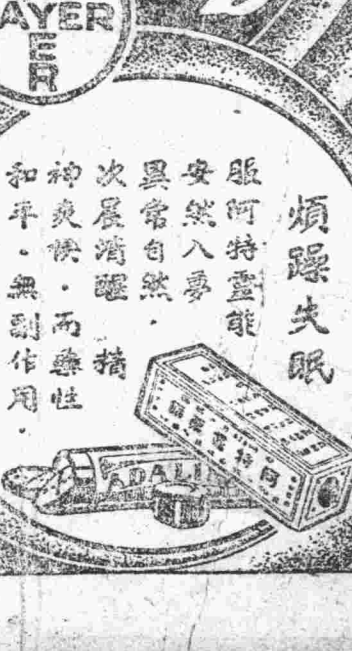 AYER
E
R
煩躁失眠
服阿特靈能
安然入夢
異常自然．
次晨清醒 精
神爽．而藥性
和平．無副作用．
阿特靈
ADALI